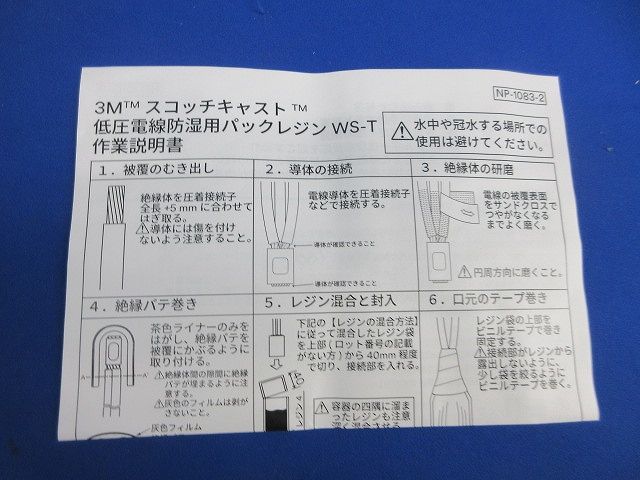 NP-1083-2
3M™ スコッチキャスト™
低圧電線防湿用パックレジン WS-T
作業説明書
⚠水中や冠水する場所での
使用は避けてください。
1．被覆のむき出し
絶縁体を圧着接続子
全長+5mmに合わせて
はぎ取る。
⚠導体には傷を付け
ないよう注意すること。
2．導体の接続
電線導体を圧着接続子
などで接続する。
導体が確認できること
導体が確認できること
3．絶縁体の研磨
電線の被覆表面
をサンドクロスで
つやがなくなる
までよく磨く。
⚠円周方向に磨くこと。
4．絶縁パテ巻き
茶色ライナーのみを
はがし、絶縁パテを
被覆にかぶるように
取り付ける。
⚠絶縁体間の隙間に絶縁
パテが埋まるように注
意する。
⚠灰色のフィルムは剥が
さないこと。
A
A'
灰色フィルム
5．レジン混合と封入
下記の【レジンの混合方法】
に従って混合したレジン袋
を上部(ロット番号の記載
がない方)から40mm程度
で切り、接続部を入れる。
レジン4
⚠容器の四隅に溜ま
ったレジンも注意
深く混合させる
6．口元のテープ巻き
レジン袋の上部を
ビニルテープで巻き
固定する。
⚠接続部がレジンから
露出しないように、
少し袋を絞るように
ビニルテープを巻く。